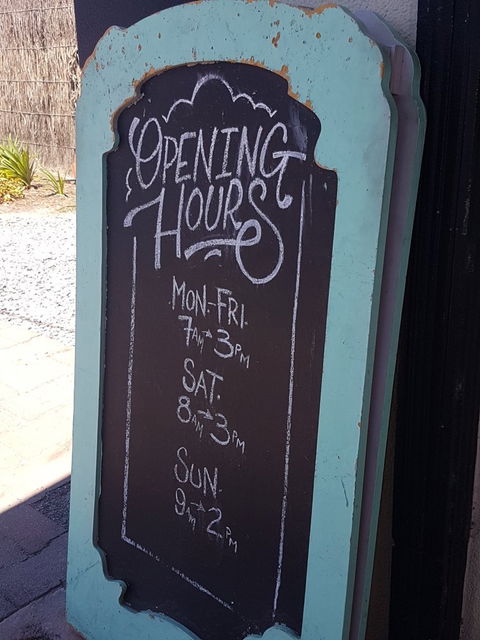 OPENING
HOURS
MON-FRI.
7AM→3PM
SAT.
8AM→3PM
SUN.
9AM→2PM